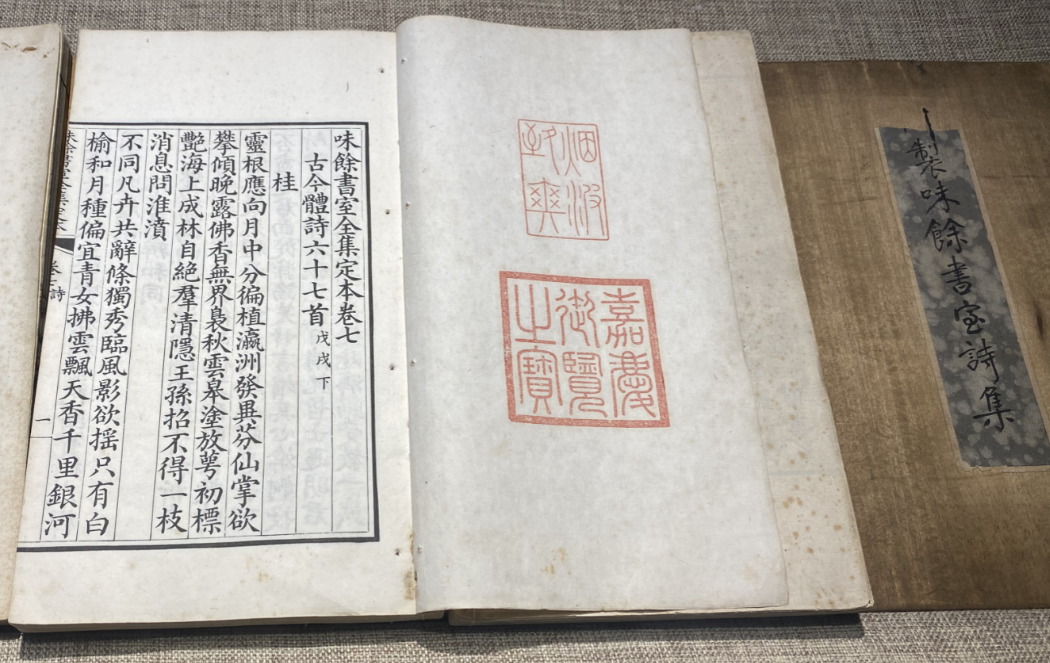 製味餘書室詩集
烟波
致爽
嘉慶
御覽
之寶
味餘書室全集定本卷七
古今體詩六十七首 戊戌下
桂
靈根應向月中分徧植瀛洲發異芬仙掌欲
攀傾晚露佛香無界裊秋雲皋塗放萼初標
艷海上成林自絕羣清隱王孫招不得一枝
消息問淮濆
不同凡卉共辭條獨秀臨風影欲搖只有白
榆和月種偏宜青女拂雲飄天香千里銀河
味餘書室全集定本
卷七 詩
一